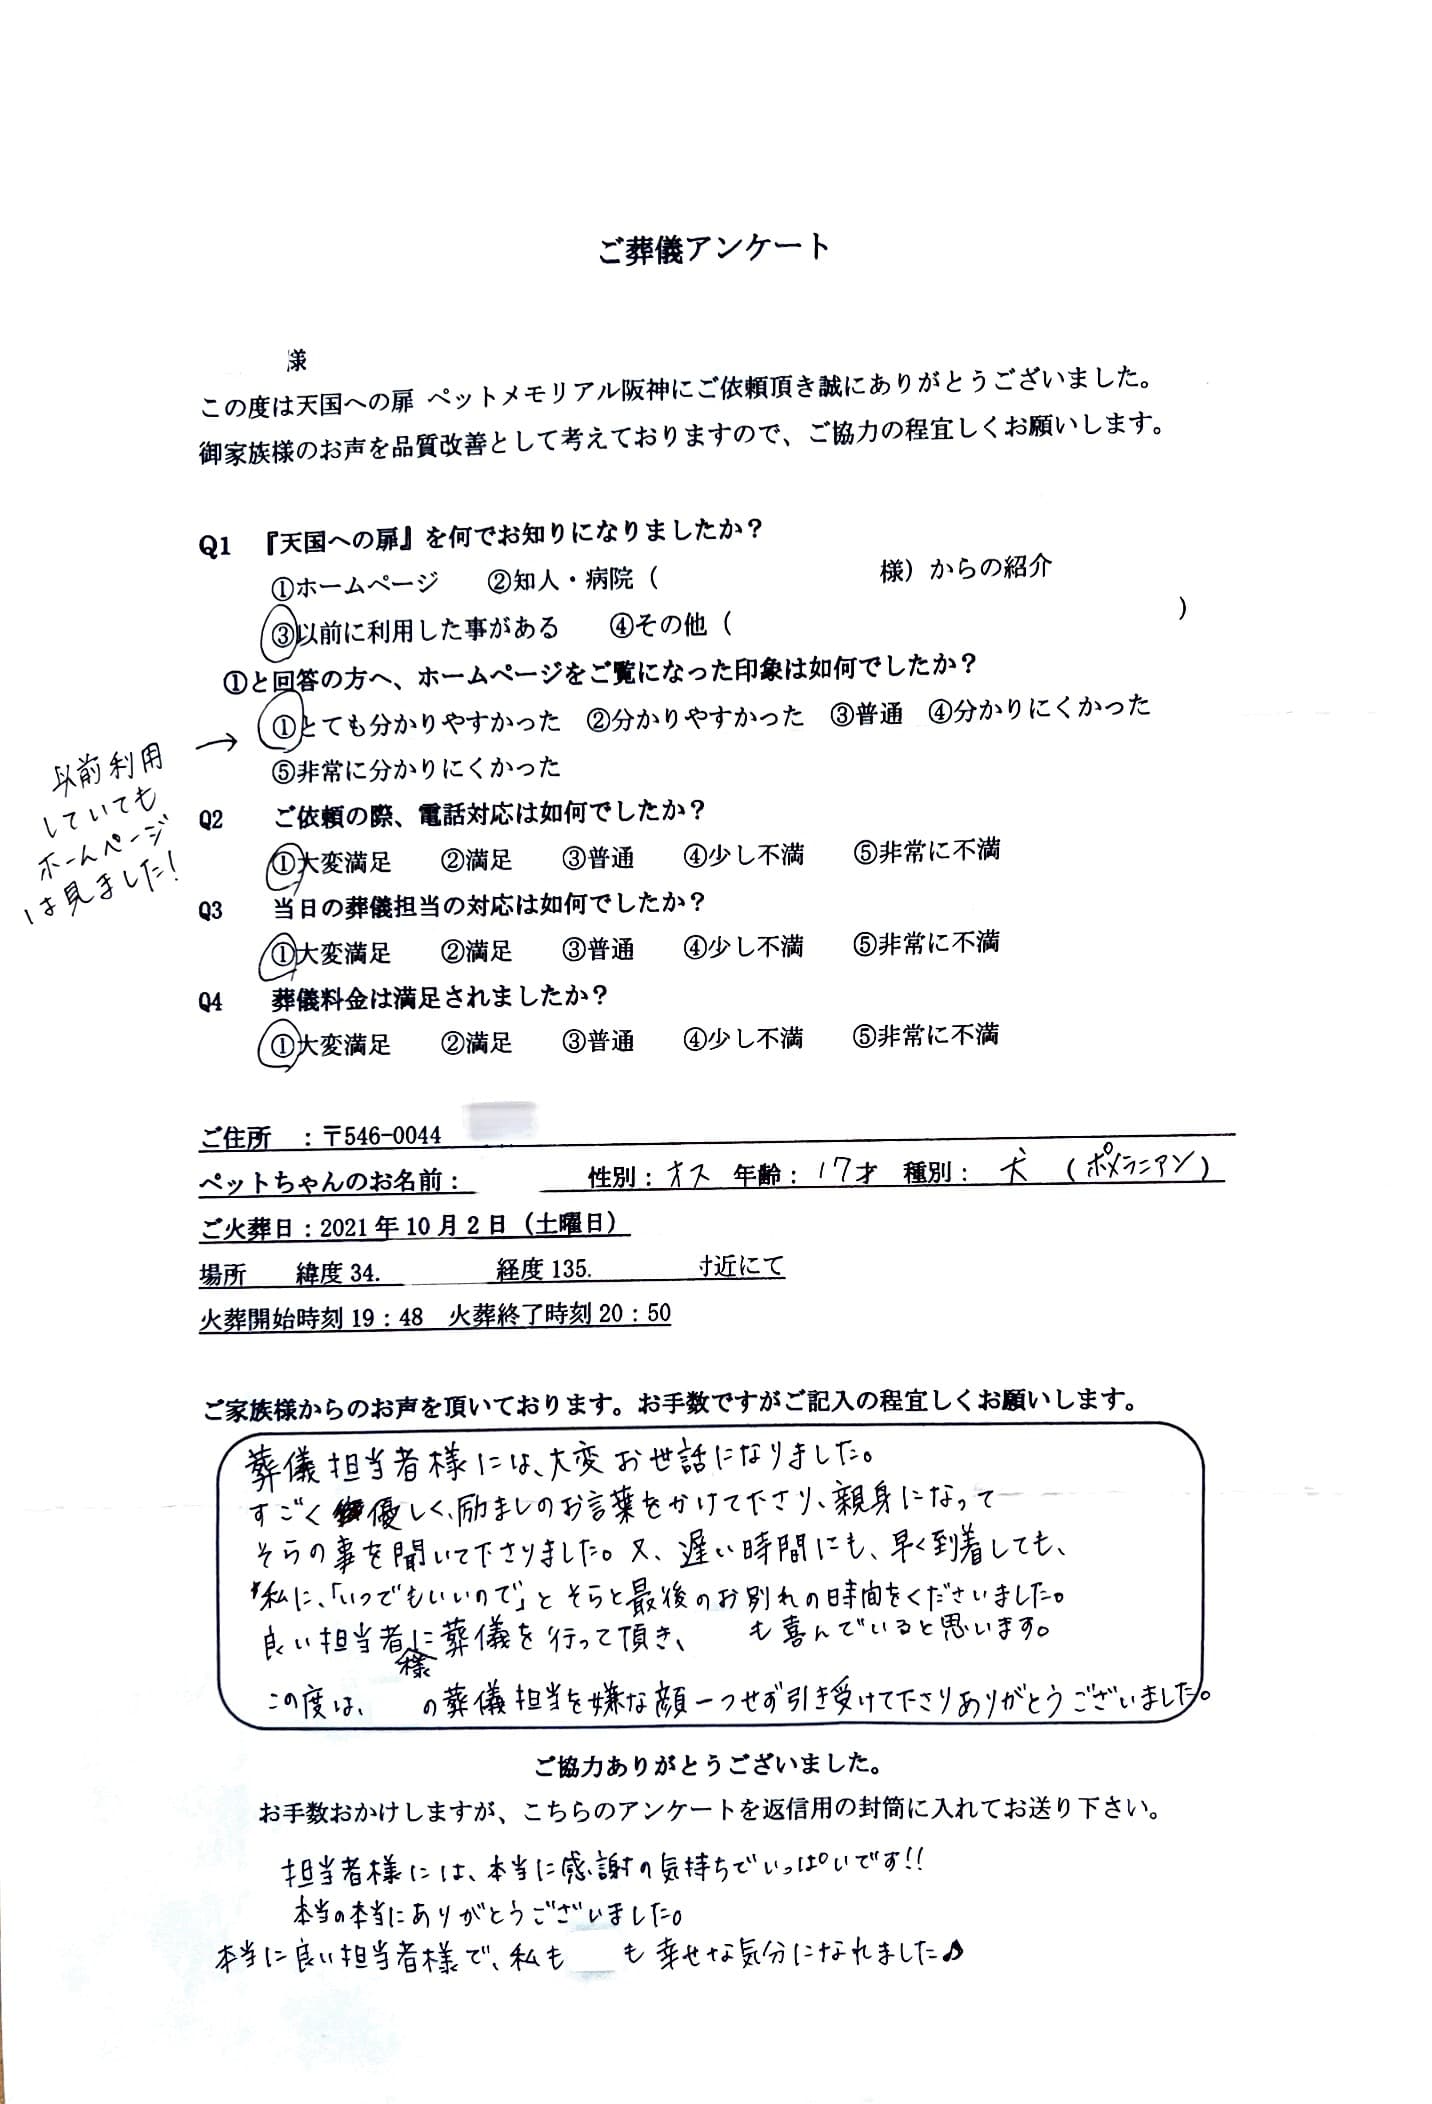 ご葬儀アンケート
様
この度は天国への扉 ペットメモリアル阪神にご依頼頂き誠にありがとうございました。
御家族様のお声を品質改善として考えておりますので、ご協力の程宜しくお願いします。
Q1 『天国への扉』を何でお知りになりましたか？
①ホームページ ②知人・病院（ 様）からの紹介
③以前に利用した事がある ④その他（ ）
①と回答の方へ、ホームページをご覧になった印象は如何でしたか？
①とても分かりやすかった ②分かりやすかった ③普通 ④分かりにくかった
⑤非常に分かりにくかった
以前利用
していても
ホームページ
は見ました！
→
Q2 ご依頼の際、電話対応は如何でしたか？
①大変満足 ②満足 ③普通 ④少し不満 ⑤非常に不満
Q3 当日の葬儀担当の対応は如何でしたか？
①大変満足 ②満足 ③普通 ④少し不満 ⑤非常に不満
Q4 葬儀料金は満足されましたか？
①大変満足 ②満足 ③普通 ④少し不満 ⑤非常に不満
ご住所 ：〒546-0044
ペットちゃんのお名前： 性別：オス 年齢：17才 種別： 犬 （ポメラニアン）
ご火葬日：2021年10月2日（土曜日）
場所 緯度34. 経度135. 付近にて
火葬開始時刻19：48 火葬終了時刻20：50
ご家族様からのお声を頂いております。お手数ですがご記入の程宜しくお願いします。
葬儀担当者様には、大変お世話になりました。
すごく優しく、励ましのお言葉をかけて下さり、親身になって
そらの事を聞いて下さりました。又、遅い時間にも、早く到着しても、
私に、「いつでもいいので」とそらと最後のお別れの時間をくださいました。
良い担当者様に葬儀を行って頂き、 も喜んでいると思います。
この度は、 の葬儀担当を嫌な顔一つせず引き受けて下さりありがとうございました。
ご協力ありがとうございました。
お手数おかけしますが、こちらのアンケートを返信用の封筒に入れてお送り下さい。
担当者様には、本当に感謝の気持ちでいっぱいです!!
本当の本当にありがとうございました。
本当に良い担当者様で、私も も幸せな気分になれました♪